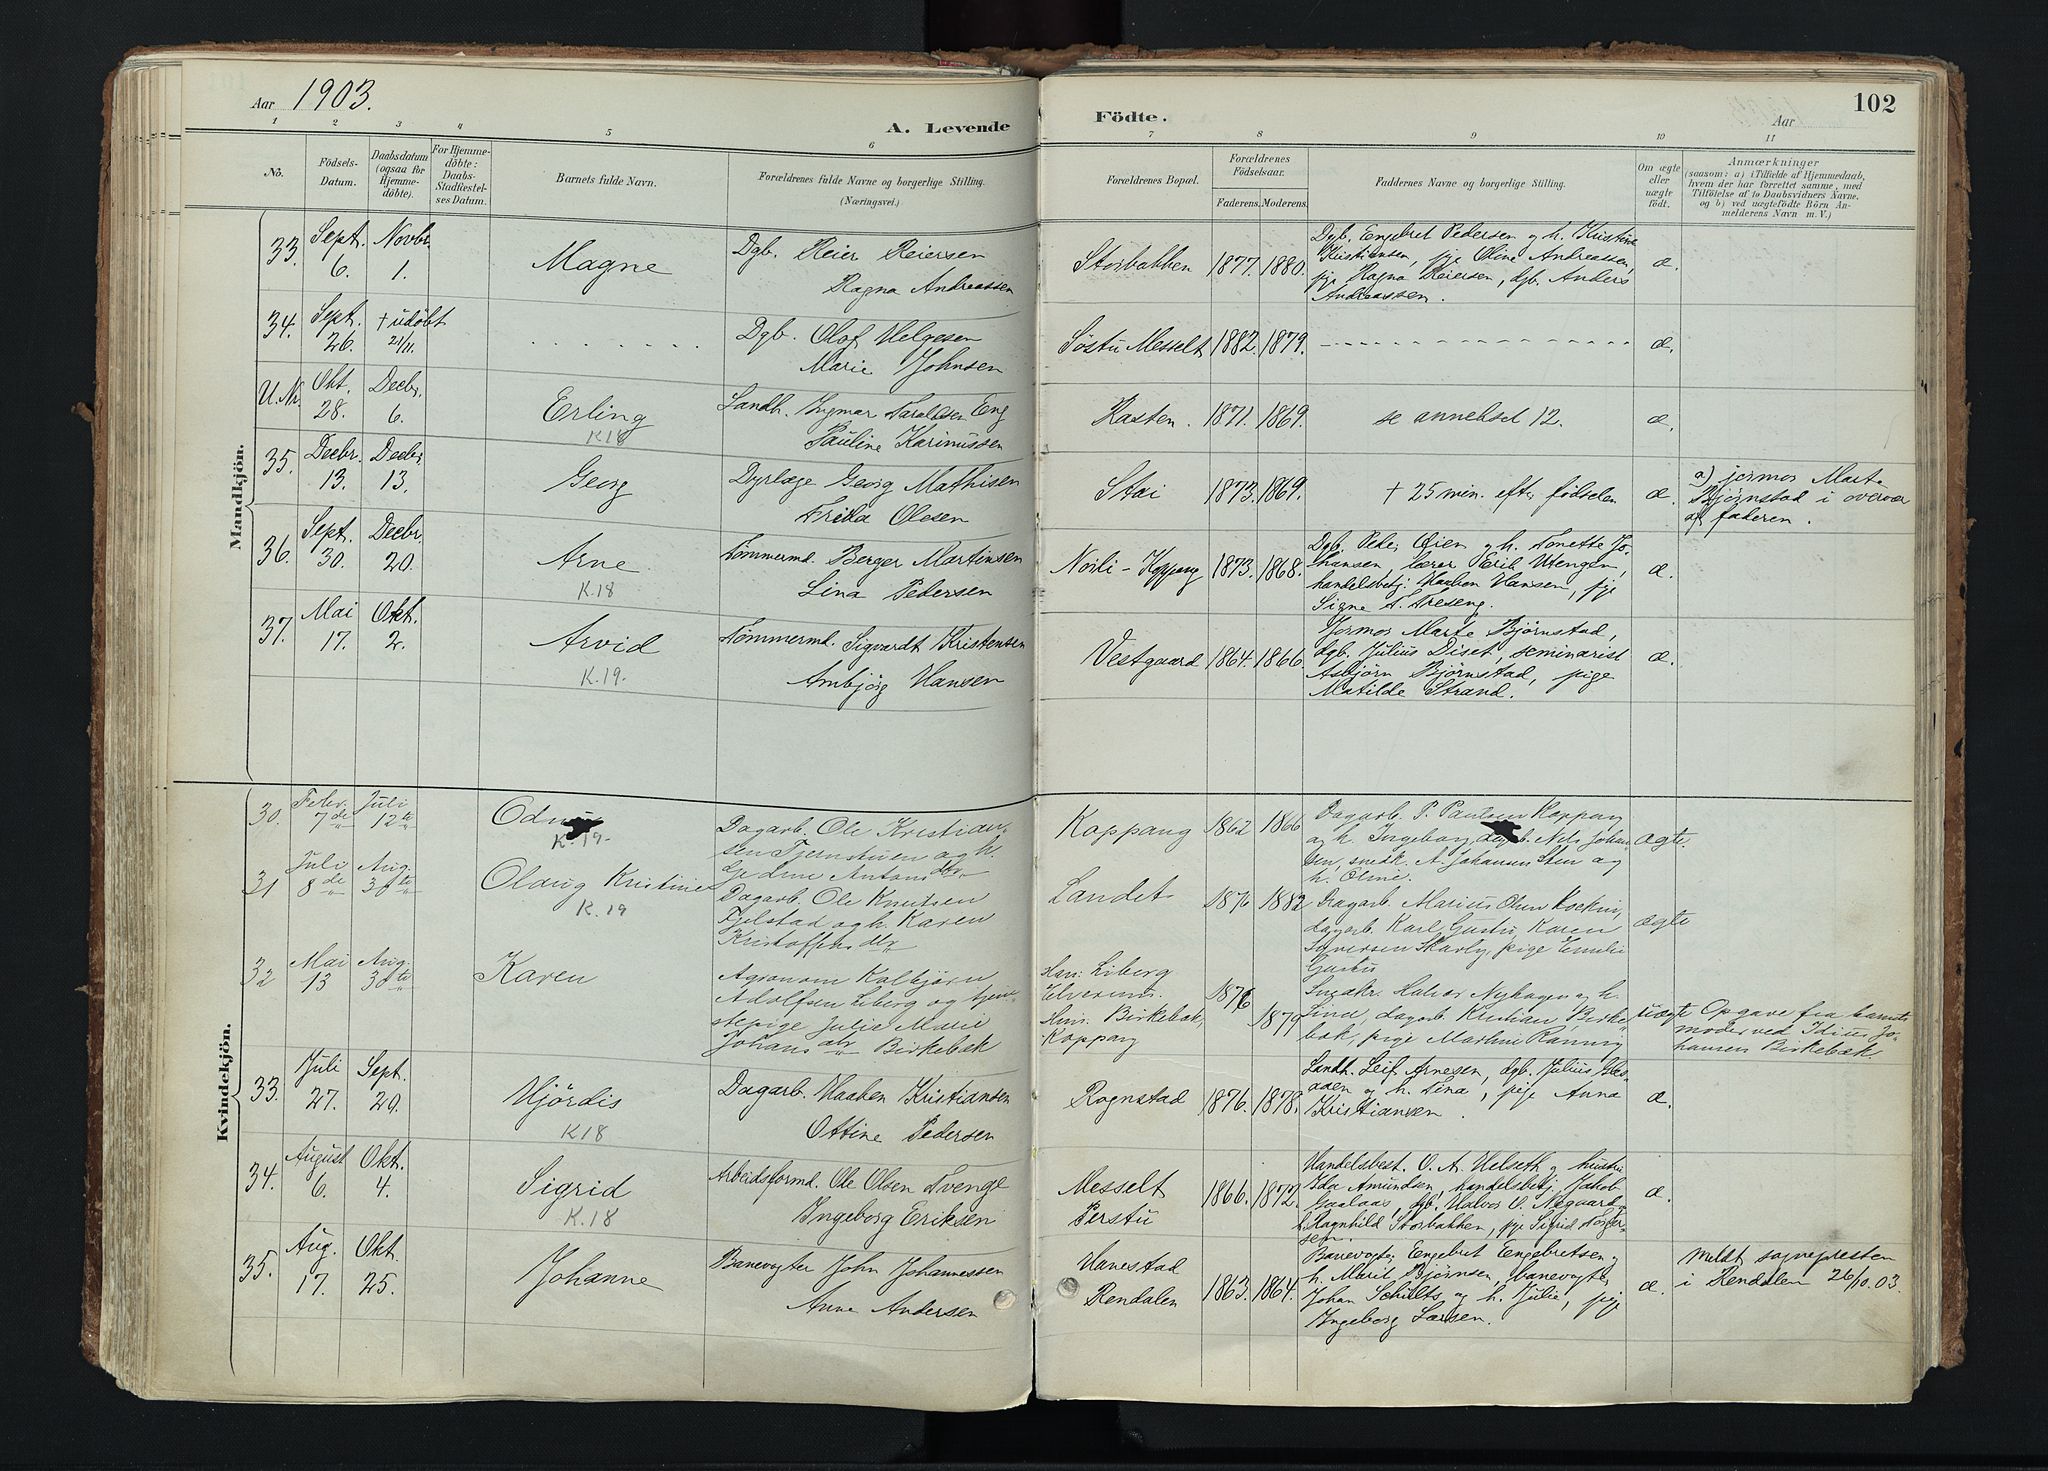 Aar 1903.
A. Levende
Födte.
Aar
102
1 2 3 4 5 6
7 8 9 10 11
No.
Födsels-
Datum.
Daabsdatum
(ogsaa for
Hjemme-
döbte).
For Hjemme-
döbte:
Daabs-
Stadfæstel-
ses Datum.
Barnets fulde Navn.
Forældrenes fulde Navne og borgerlige Stilling.
(Næringsvei.)
Forældrenes Bopæl.
Forældrenes
Födselsaar.
Faderens. Moderens.
Faddernes Navne og borgerlige Stilling.
Om ægte
eller
uægte
födt.
Anmærkninger
(saasom: a) i Tilfælde af Hjemmedaab,
hvem der har forrettet samme, med
Tilföielse af to Daabsvidners Navne.
og b) ved uægtefödte Börn An-
melderens Navn m. V.)
Mandkjön.
33. Sept. 6. Novbr. 1.
Magne
Dgb. Reier Reiersen
Ragna Andreassen
Storbakken 1877. 1880.
Dgb. Engebret Pedersen og h. Kristine
Kristiansen, pige Oline Andreassen,
pige Ragna Reiersen, dgb. Anders
Andreassen.
æ.
34. Sept. 26. † udøbt 21/11.
Dgb. Olof Helgesen
Marie Johnsen
Søstu Messelt 1882. 1879.
æ.
U. Nr. Okt. 28. Decbr. 6.
Erling
K18
Landh. Ingmar Taraldsen Eng
Pauline Karinussen
Hasten. 1871. 1869.
se annekset 12.
æ.
35. Decbr. 13. Decbr. 13.
Georg
Dyrlæge Georg Mathisen
Frida Olesen
Stai 1873. 1869.
† 25 min. efter fødselen
æ.
a) jormor Marte
Bjørnstad i overvær
af faderen.
36. Sept. 30. Decbr. 20.
Arne
K.18
Tømmermd. Berger Martinsen
Lina Pedersen
Nordli - Koppang 1873. 1868.
Dgb. Peder Øien og h. Tonette Jo-
hansen, lærer Erik Utengen,
handelsbetj. Haakon Hansen, pige
Signe T. Treseng.
æ.
37. Mai 17. Okt. 2.
Arvid
K.19.
Tømmermd. Sigvardt Kristensen
Ambjørg Hansen
Vestgaard 1864. 1866.
Jormor Marte Bjørnstad,
dgb. Julius Diset, seminarist
Asbjørn Bjørnstad, pige
Matilde Strand.
æ.
Kvindekjön.
30. Febr. 7de Juli 12te
K.19-
Dagarb. Ole Kristian-
sen Tjernstuen og h.
Gedine Antonsdtr
Koppang 1862 1866
Dagarb. P. Paulsen Koppang
og h. Ingeborg, dagarb. Nils Johan-
sen, snedk. A. Johansen Sten og
h. Oline.
ægte.
31 Juli 8de Aug. 30te
Olaug Kristine
K.19
Dagarb. Ole Knutsen
Fjelstad og h. Karen
Kristoffersdtr
Landet 1876 1882
Dagarb. Marius Olsen
dagarb. Karl Gustu Karen
Iversen Skarby, pige Emilie
Gustu
ægte
32 Mai 13 Aug. 30te
Karen
Agronom Kolbjörn
Adolfsen Liberg og tjene-
stepige Julie Marie
Johansdtr Birkebæk
Hans: Liberg
Elverum.
Hans: Birkebæk,
Koppang
1876
1879
Snedkr. Halvor Nyhagen og h.
Lina, dagarb Kristian Birke-
bæk, pige Martine Rønning
uægte
Opgave fra barnets
moder ved Idius Jo-
hansen Birkebæk.
33. Juli 27. Sept. 20.
Hjördis
K18
Dagarb. Haaken Kristiansen
Ottine Pedersen
Rognstad 1876. 1878.
Landh. Leif Arnesen, dgb. Julius
og h. Tina, pige Anna
Kristiansen.
æ.
34. August 6. Okt. 4.
Sigrid
K.18
Arbeidsformd. Ole Olsen Tvenge
Ingeborg Eriksen
Messelt
Perstu
1866. 1872.
Handelsbest. O. A. Helseth og hustru
Ida Amundsen, handelsbetj. Jakob
Gaalaas, dgb. Halvor O. Nygaard,
h. Ragnhild Storbakken, pige Sigrid
æ.
35. Aug. 17. Okt. 25.
Johanne
Banevogter John Johannessen
Anne Andersen
Hanestad
Rendalen
1863. 1864.
Banevogter Engebret Engebretsen og
h. Marit Bjørnsen, banevogter
Johan Schults og h. Julie, pige
Ingeborg Larsen.
æ.
Meldt sognepresten
i Rendalen 26/10.03.